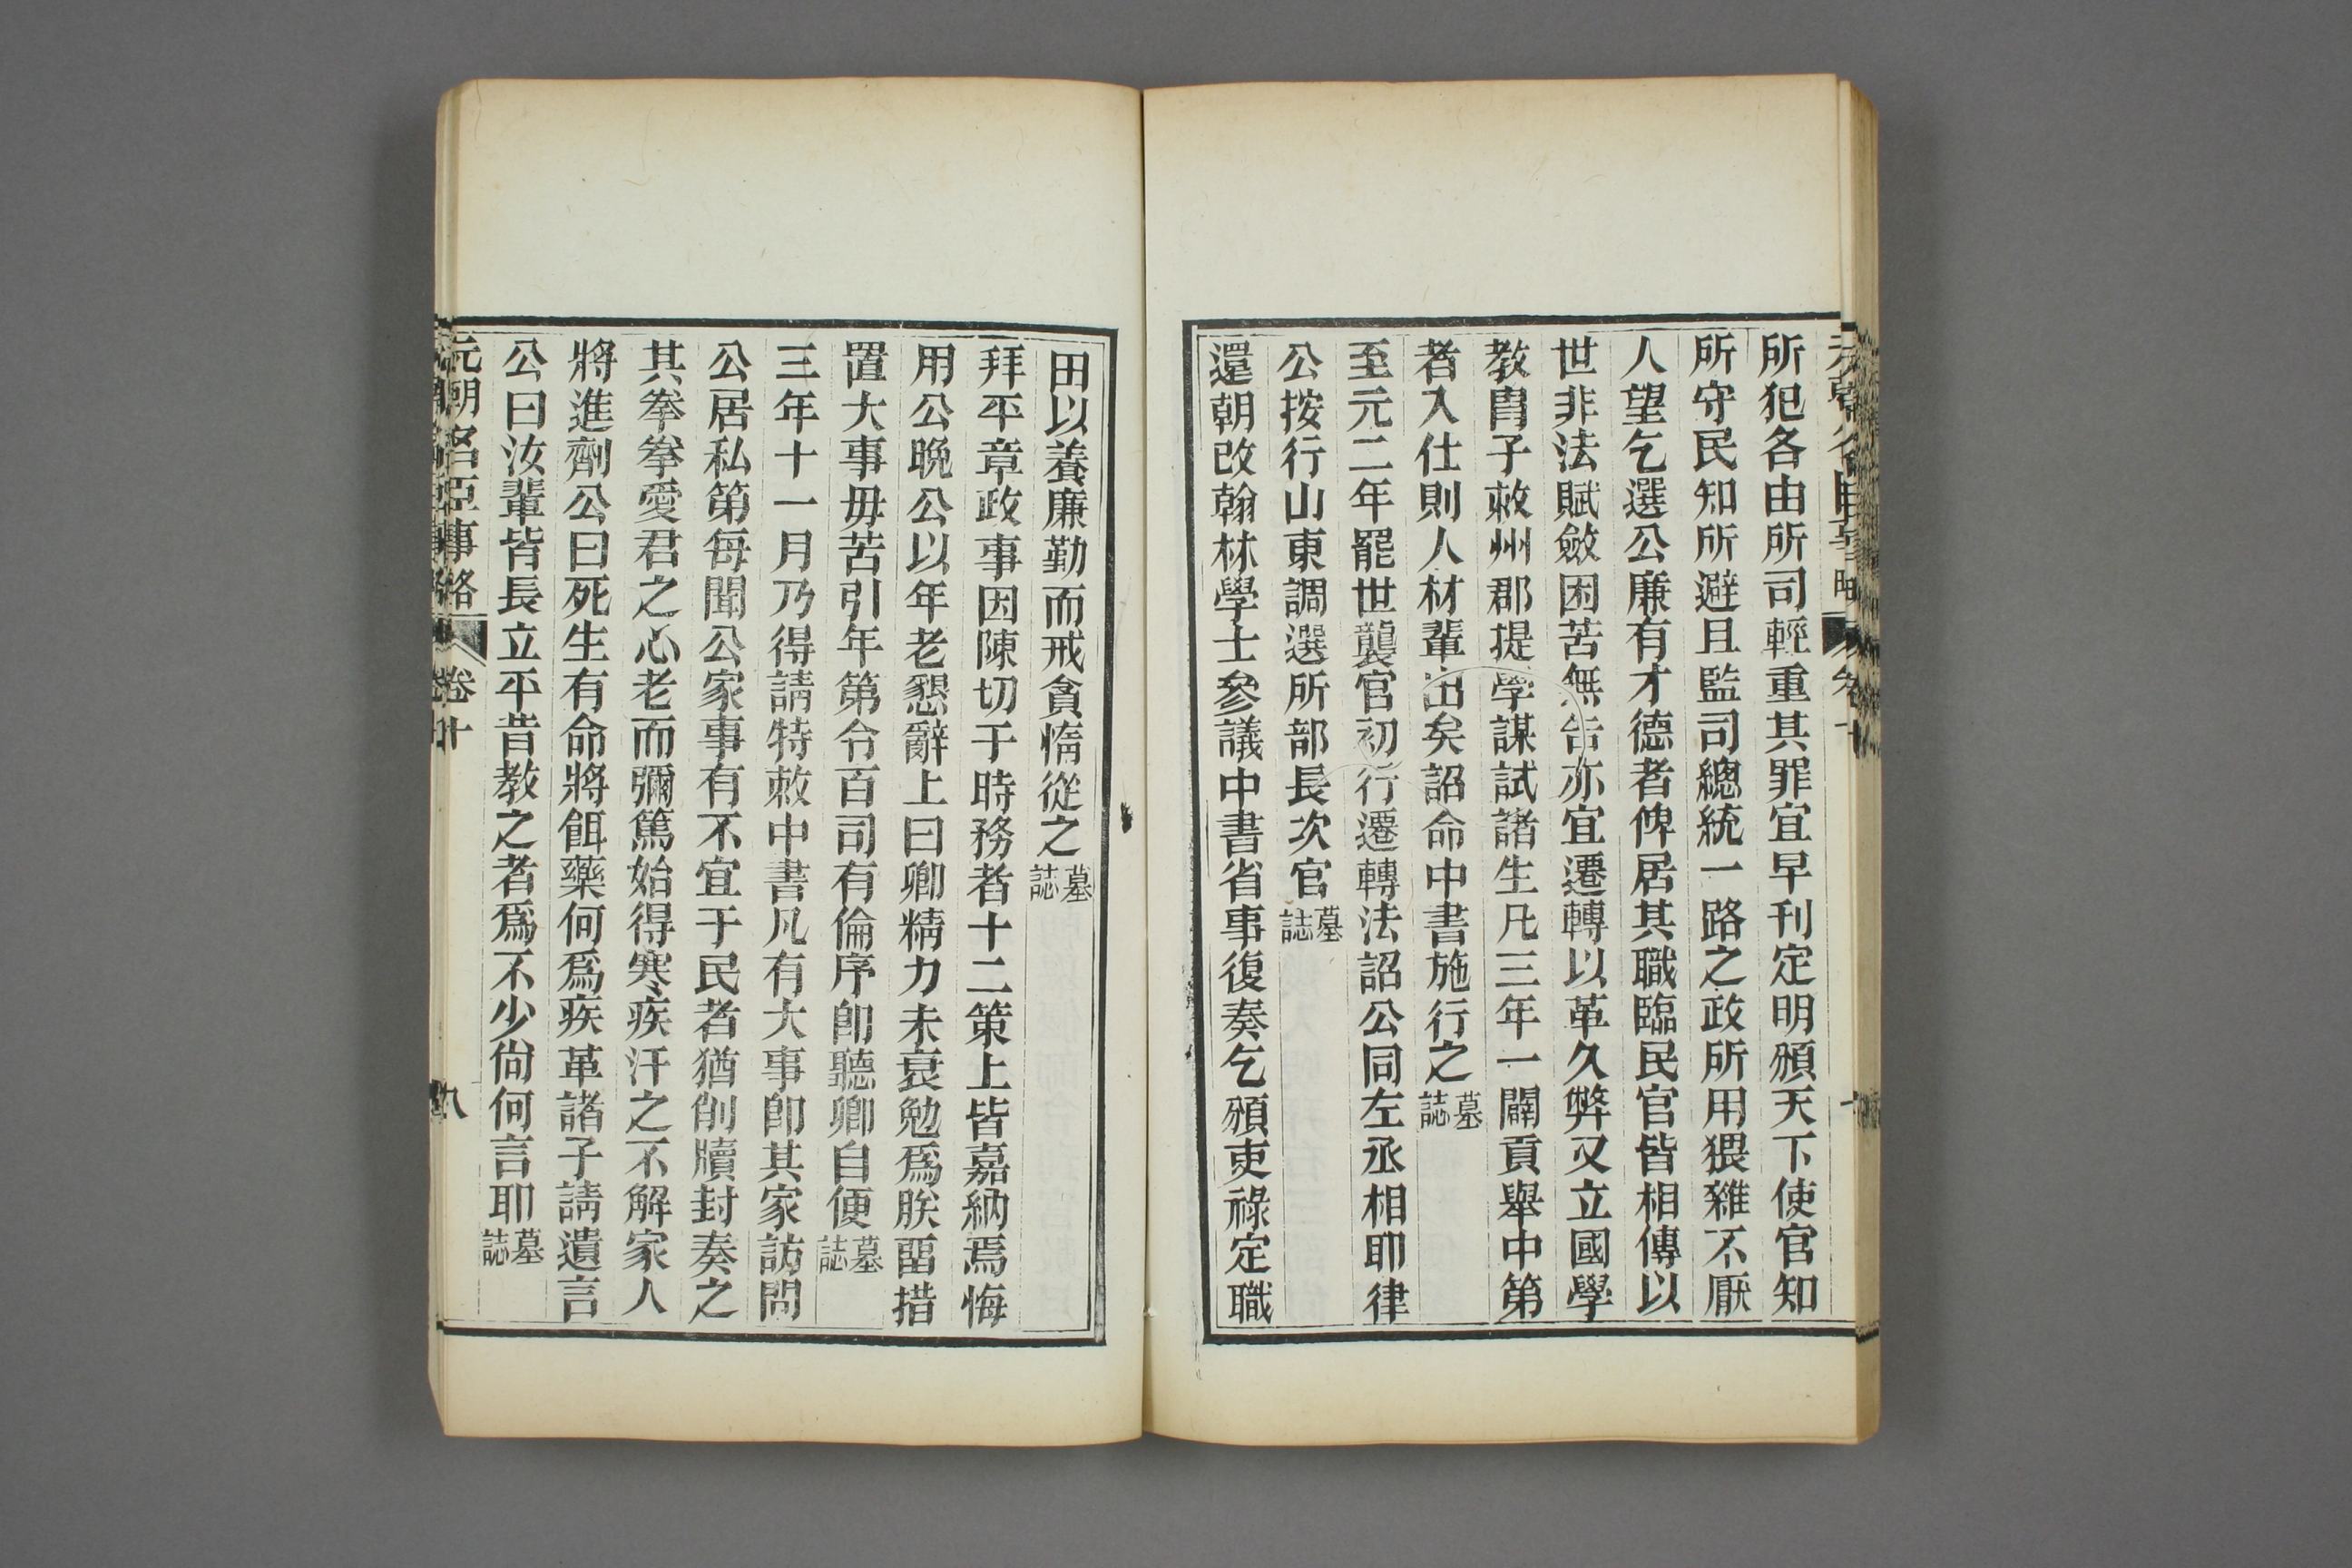 所犯各由所司輕重其罪宜早刊定明頒天下使官知
所守民知所避且監司總統一路之政所用猥雜不厭
人望乞選公廉有才德者俾居其職臨民官皆相傳以
世非法賦斂困苦無告亦宜遷轉以革久弊又立國學
教胄子敕州郡提學課試諸生凡三年一闢貢舉中第
者入仕則人材輩出矣詔命中書施行之墓誌
至元二年罷世襲官初行遷轉法詔公同左丞相耶律
公按行山東調選所部長次官墓誌
還朝改翰林學士參議中書省事復奏乞頒吏祿定職
田以養廉勤而戒貪惰從之墓誌
拜平章政事因陳切于時務者十二策上皆嘉納焉悔
用公晚公以年老懇辭上曰卿精力未衰勉爲朕畱措
置大事毋苦引年第令百司有倫序卽聽卿自便墓誌
三年十一月乃得請特敕中書凡有大事卽其家訪問
公居私第每聞公家事有不宜于民者猶削牘封奏之
其拳拳愛君之心老而彌篤始得寒疾汗之不解家人
將進劑公曰死生有命將餌藥何爲疾革諸子請遺言
公曰汝輩皆長立平昔教之者爲不少尙何言耶墓誌
元朝名臣事略 卷十 八